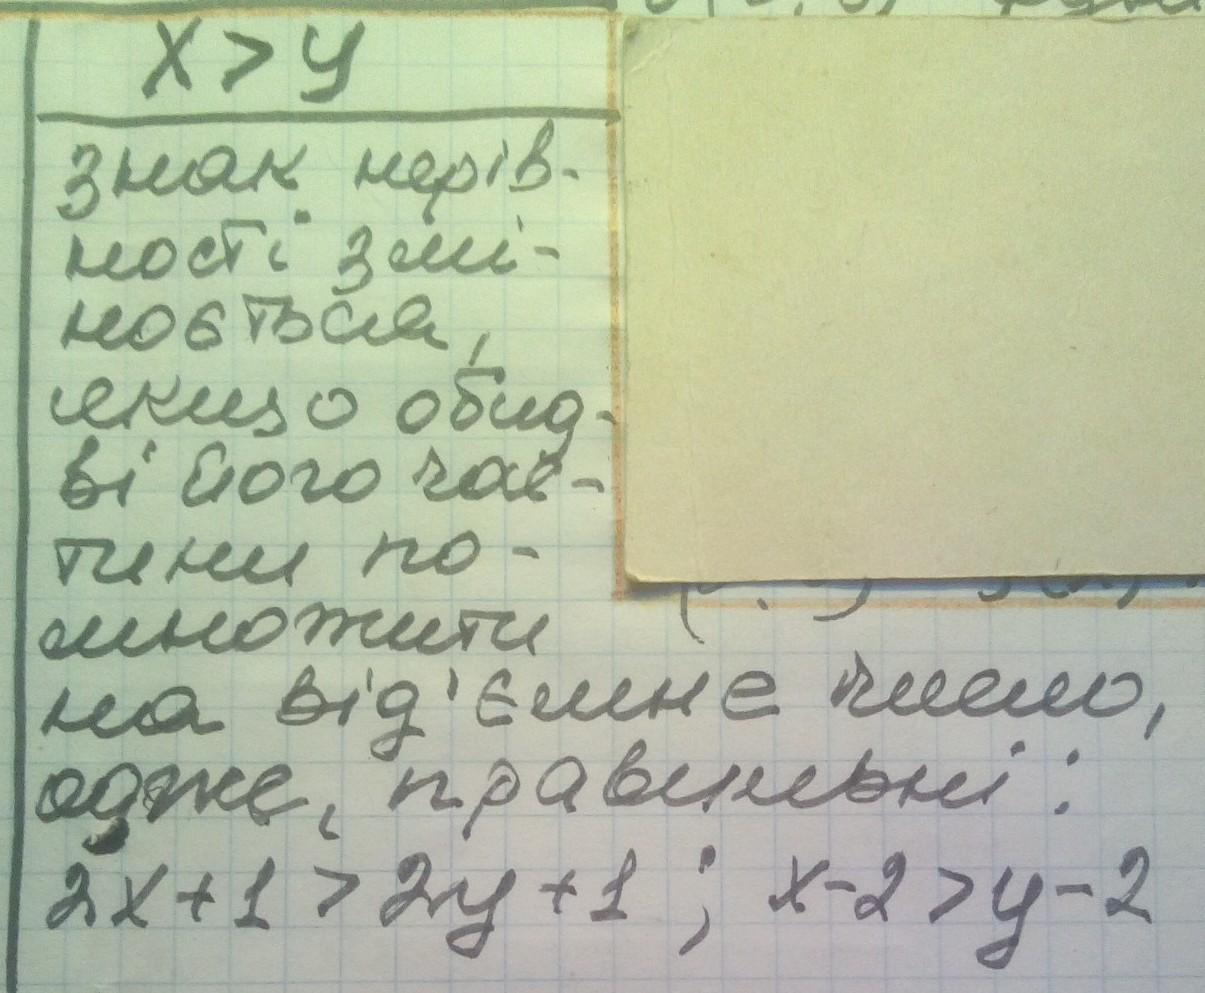 x > y
знак нерів-
ності змі-
ноється,
якщо обид-
ві його час-
тини по-
множити
на від'ємне число,
одже, правильні:
2x+1 > 2y+1 ; x-2 > y-2